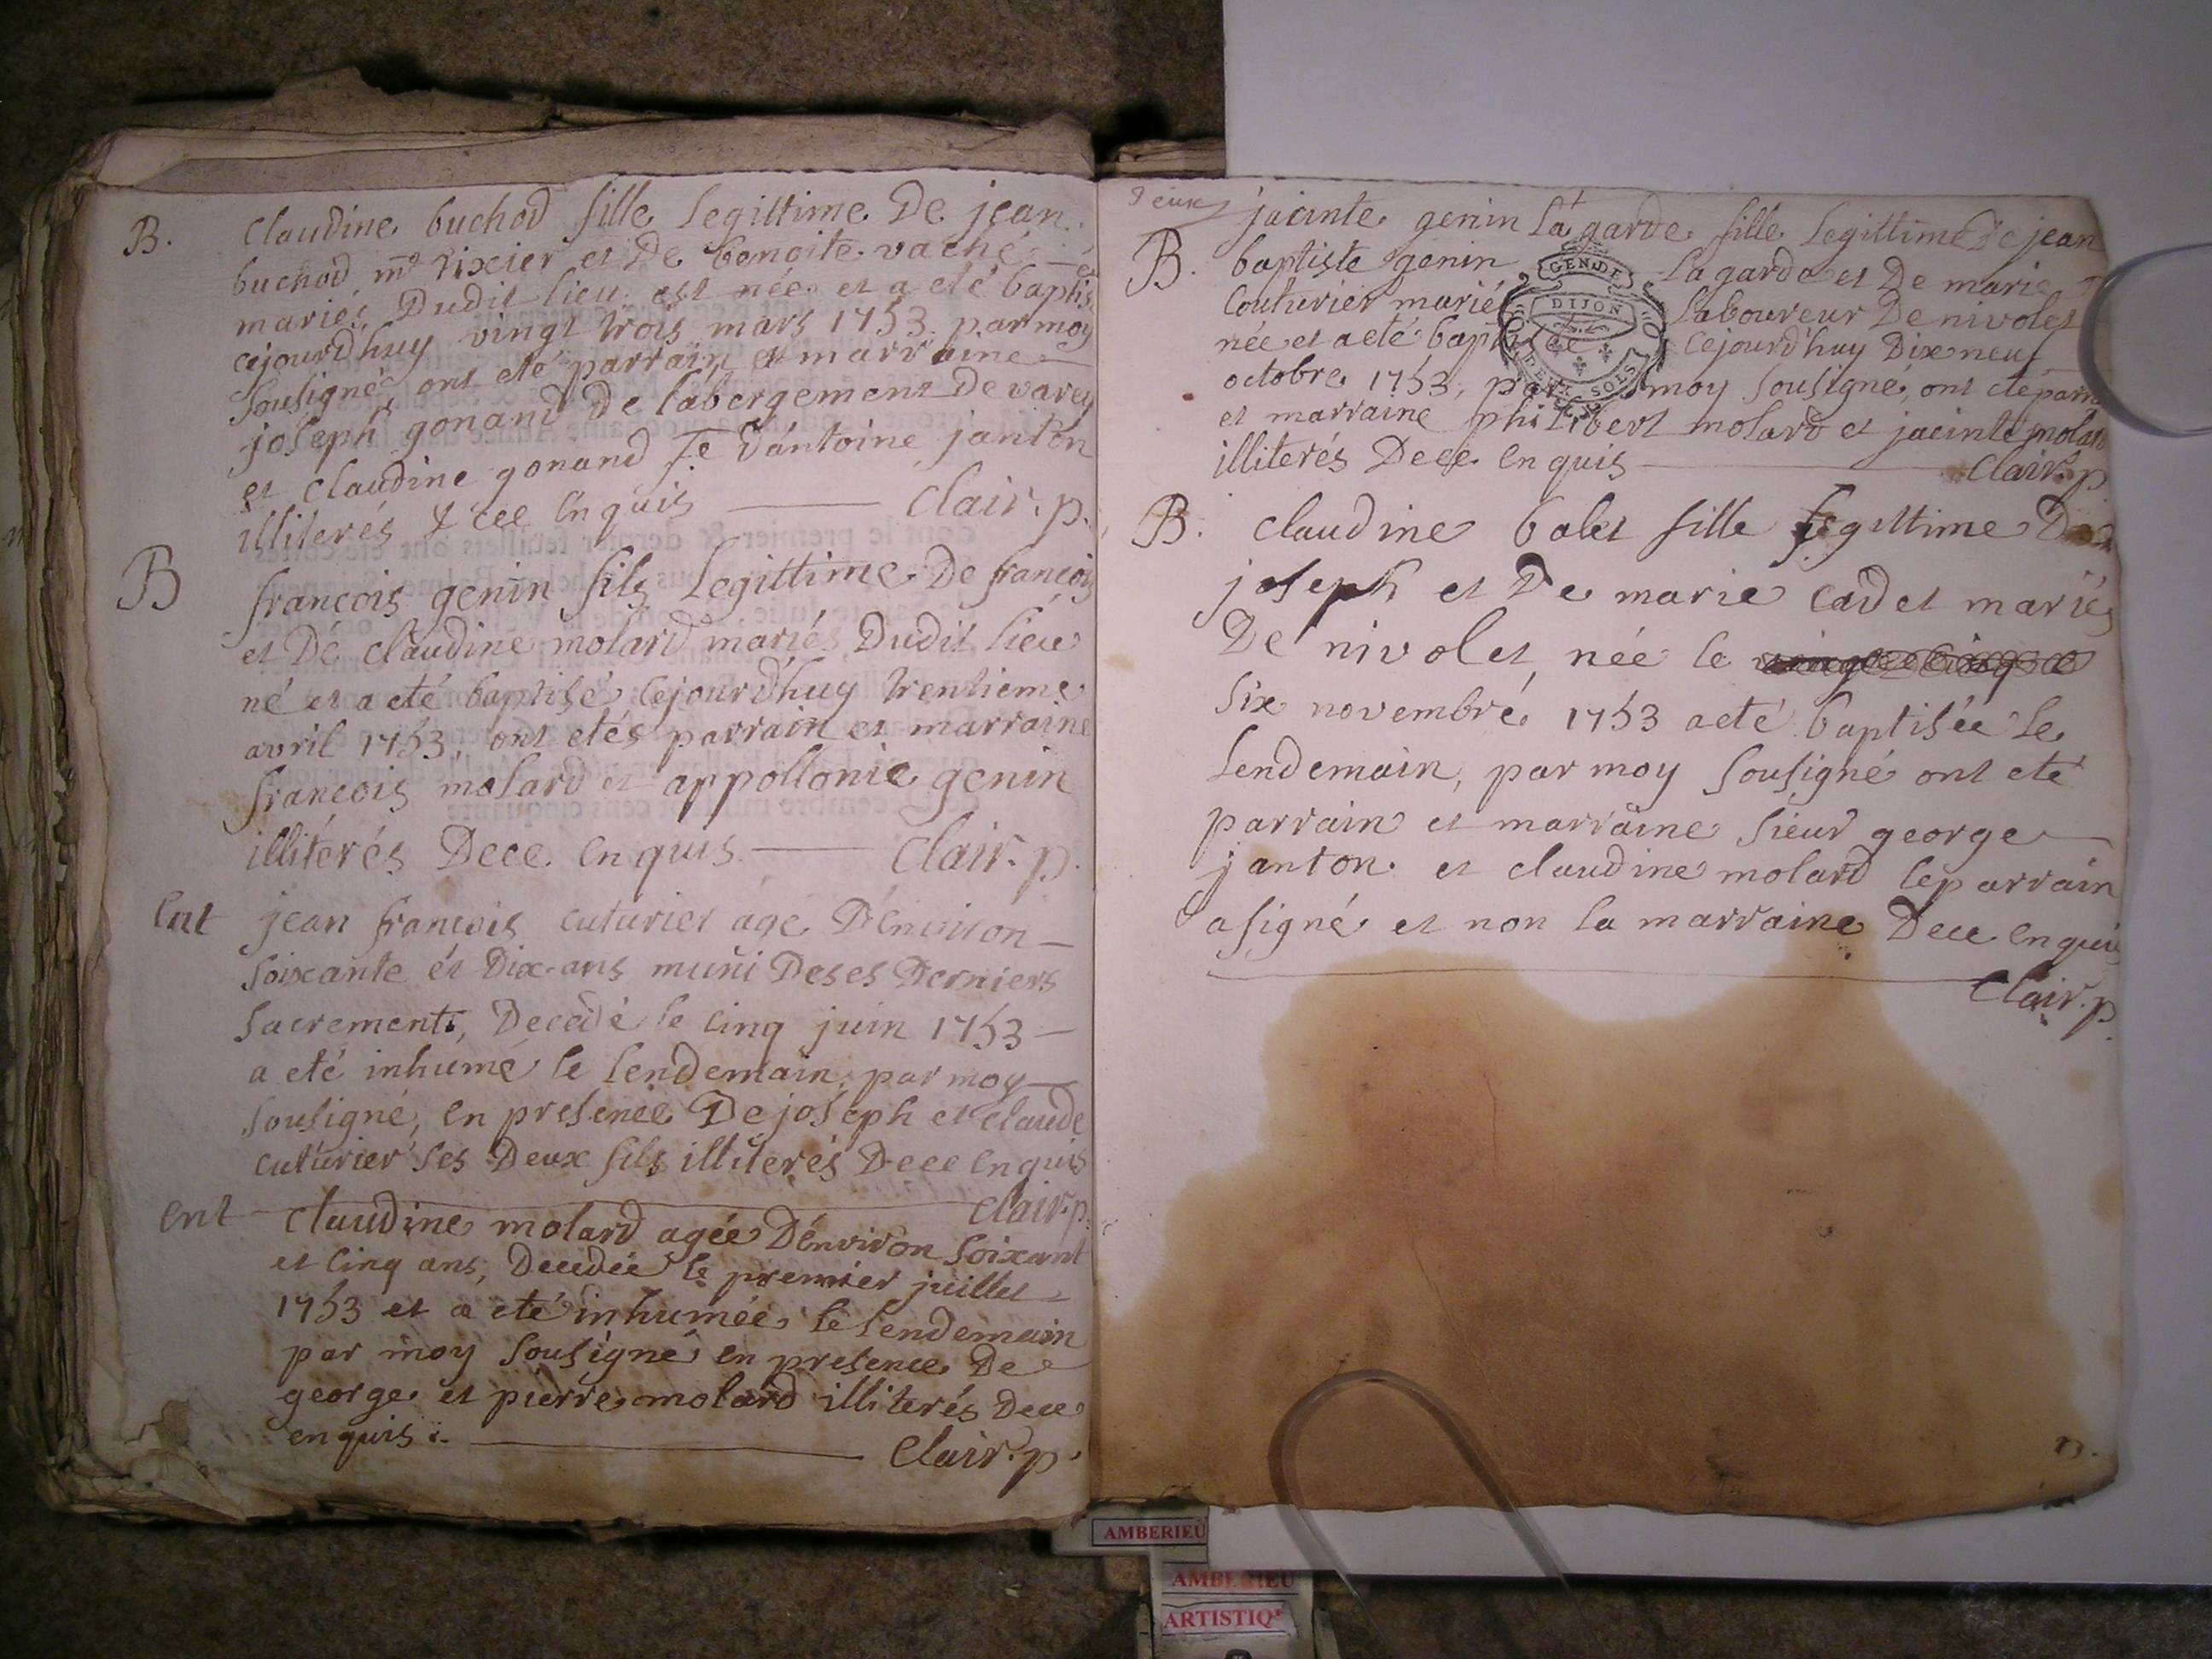 B.
claudine buchod fille legittime De jean
buchod md tixier et De benoite vaché
mariés Dudit lieu est née et a eté baptis
cejourd'huy vingt trois mars 1753 par moy
sousigné ont eté parrain et marraine
joseph gonand De l'abergement De varey
et claudine gonand fe D'antoine janton
illiterés De ce enquis Clair. p.
B
françois genin fils legittime De françois
et De claudine molard mariés Dudit lieu
né et a eté baptisé cejourd'huy trentieme
avril 1753, ont etés parrain et marraine
françois molard et appollonie genin
illiterés Dece enquis Clair. p.
ent
jean françois cuturier agé D'environ
soixante et Dix ans muni Deses Derniers
sacrements, Decedé le cinq juin 1753
a eté inhumé le lendemain, par moy
sousigné, en presence De joseph et claude
cuturier ses Deux fils illiterés Dece enquis
Clair. p.
ent
claudine molard agée D'environ soixant
et cinq ans, Decedée le premier juillet
1753 et a eté inhumée le lendemain
par moy sousigné en presence De
george et pierre molard illiterés Dece
enquis Clair. p.
Deux
jacinte genin la garde fille legittime De jean
B. baptiste genin la garde et De marie
couturier mariés laboureur De nivolet
née et a eté baptisée cejourd'huy Dix neuf
octobre 1753, par moy sousigné, ont eté parra
et marraine philibert molard et jacinte molar
illiterés Dece enquis Clair. p.
GEN DE
DIJON
DEUX SOLS
B. claudine bolet fille legittime De
joseph et De marie cadet mariés
De nivolet née le
six novembre 1753 a eté baptisée le
lendemain, par moy sousigné ont eté
parrain et marraine sieur george
janton et claudine molard le parrain
a signé et non la marraine Dece enquis
Clair. p.
AMBERIEU
AMBERIEU
ARTISTIQ